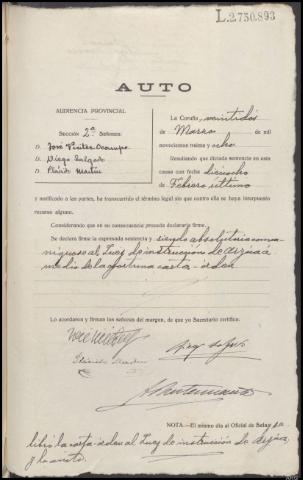 L.2750.893
AUTO
AUDIENCIA PROVINCIAL
Sección 2ª Señores:
D. José Vieitez Ocampo
D. Diego Salgado
D. Plácido Martin
La Coruña, veintidos
de Marzo de mil
novecientos treinta y ocho
Resultando que dictada sentencia en esta
causa con fecha dieciocho
de Febrero último
y notificado a las partes, ha transcurrido el término legal sin que contra ella se haya interpuesto
recurso alguno.
Considerando que en su consecuencia procede declararla firme.
Se declara firme la expresada sentencia y siendo absolutoria comu-
niquese al Juez de instruccion de Arzua a
medio de la oportuna carta-orden
Lo acordaron y firman los señores del margen, de que yo Secretario certifico.
NOTA.—El mismo día el Oficial de Sala
libró la carta-orden al Juez de instrucción de Arzua,
y lo anoto.